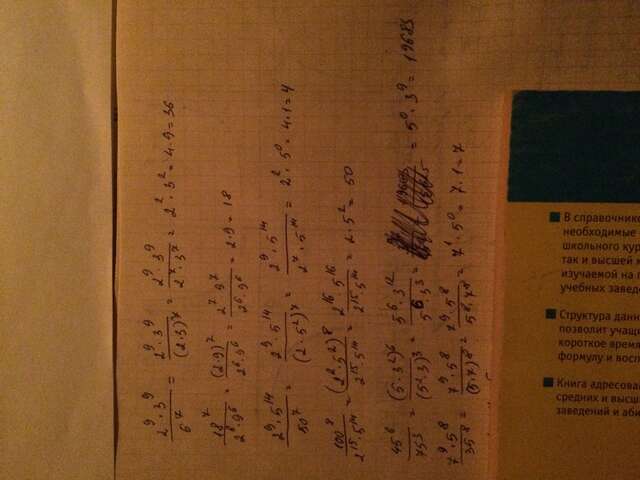 2⁹·3⁹/6⁷ = 2⁹·3⁹/(2·3)⁷ = 2⁹·3⁹/2⁷·3⁷ = 2²·3² = 4·9 = 36
18⁷/2⁶·9⁶ = (2·9)⁷/2⁶·9⁶ = 2⁷·9⁷/2⁶·9⁶ = 2·9 = 18
2⁹·5¹⁴/50⁷ = 2⁹·5¹⁴/(2·5²)⁷ = 2⁹·5¹⁴/2⁷·5¹⁴ = 2²·5⁰ = 4·1 = 4
100⁸/2¹⁵·5¹⁴ = (2²·5²)⁸/2¹⁵·5¹⁴ = 2¹⁶·5¹⁶/2¹⁵·5¹⁴ = 2·5² = 50
45⁶/75³ = (5·3²)⁶/(5²·3)³ = 5⁶·3¹²/5⁶·3³ = 5⁰·3⁹ = 19683
7⁹·5⁸/35⁸ = 7⁹·5⁸/(5·7)⁸ = 7⁹·5⁸/5⁸·7⁸ = 7¹·5⁰ = 7·1 = 7
■ В справочнике
необходимые
школьного кур
так и высшей м
изучаемой на п
учебных завед
■ Структура данн
позволит учащ
короткое время
формулу и восп
■ Книга адресова
средних и высш
заведений и аби